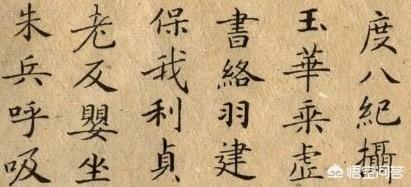 度八紀攝
玉華乘虛
書絡羽建
保我利貞
老反嬰坐
朱兵呼吸
悟空问答